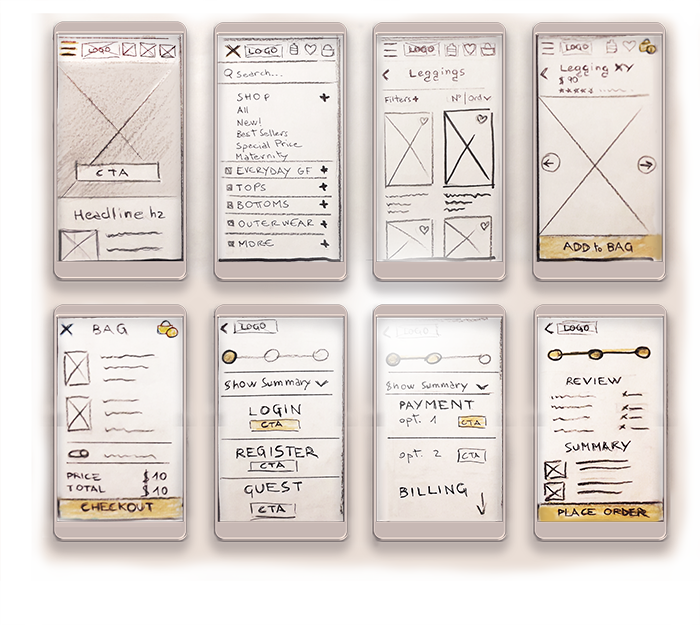 LOGO
CTA
Headline h2
LOGO
Search...
SHOP +
All
New!
Best Sellers
Special Price
Maternity
EVERYDAY GF +
TOPS +
BOTTOMS +
OUTERWEAR +
MORE +
LOGO
< Leggings
Filters+ N° | Ord
LOGO
< Legging XY
$ 90
ADD to BAG
X BAG
PRICE $10
TOTAL $10
CHECKOUT
< LOGO
Show Summary
LOGIN
CTA
REGISTER
CTA
GUEST
CTA
< LOGO
Show Summary
PAYMENT
opt. 1 CTA
opt. 2 CTA
BILLING
< LOGO
REVIEW
SUMMARY
PLACE ORDER